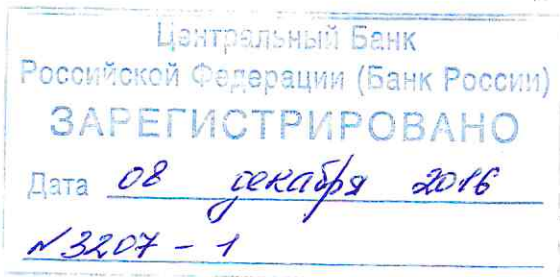 Центральный Банк
Российской Федерации (Банк России)
ЗАРЕГИСТРИРОВАНО
Дата 08 декабря 2016
№3207-1